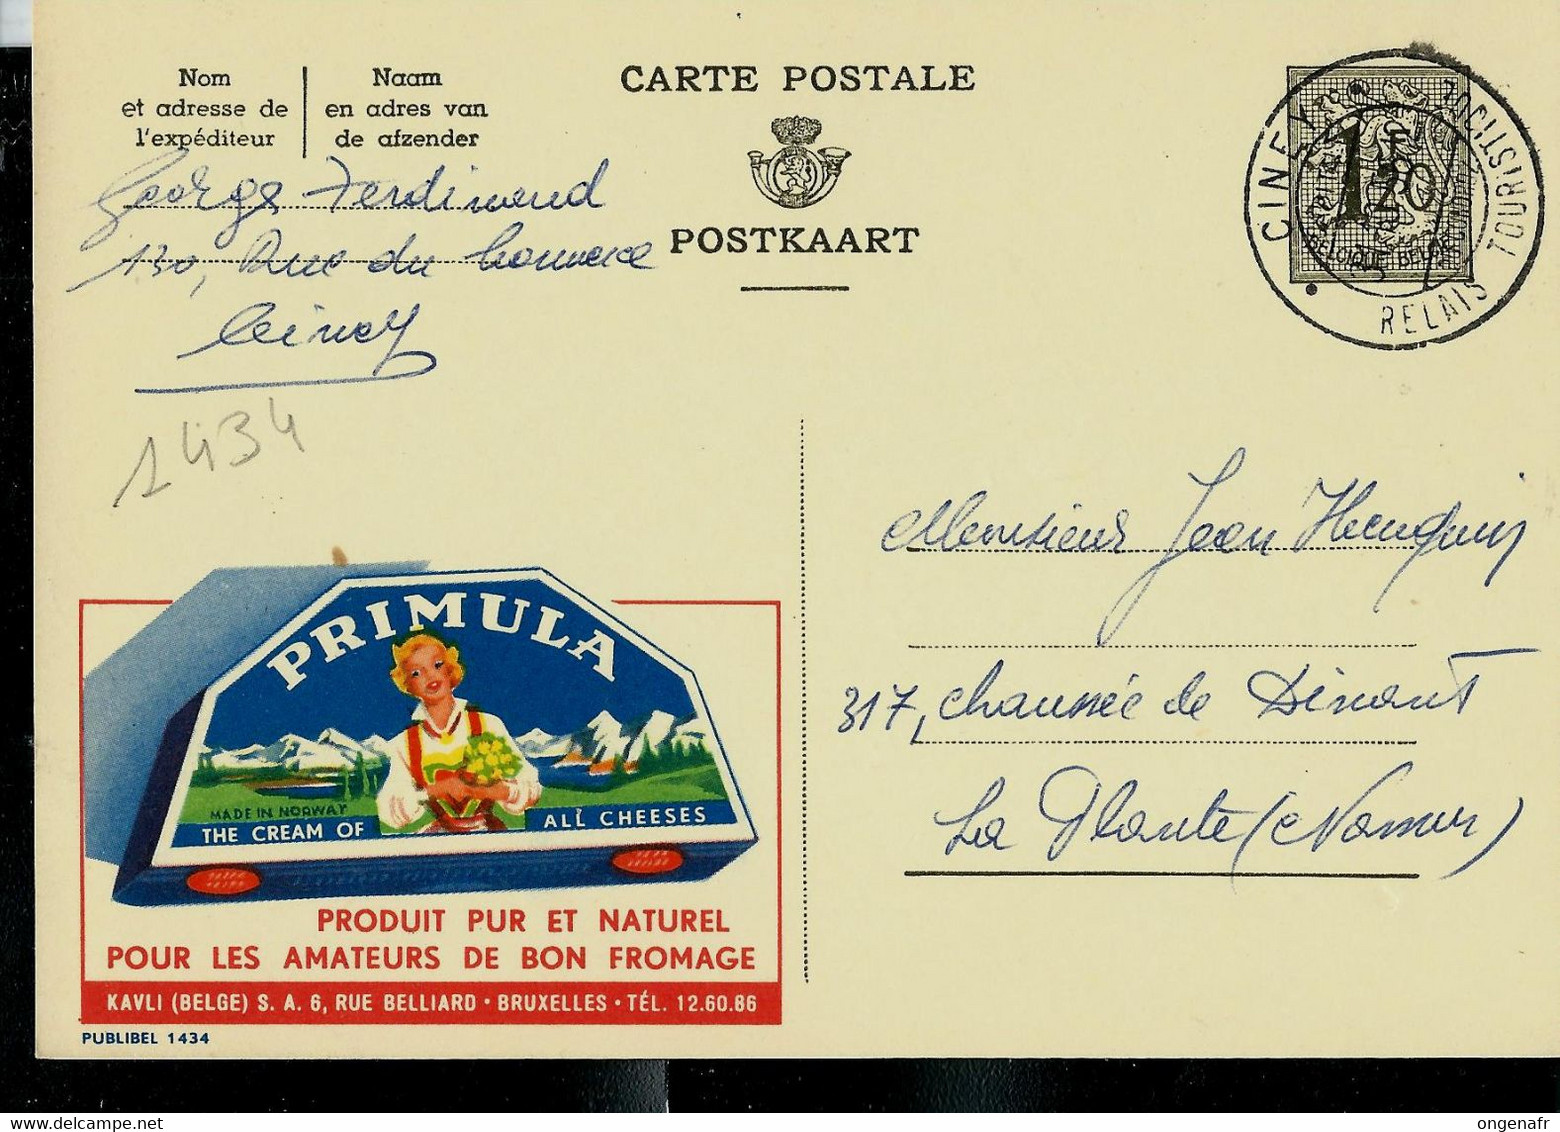 Nom
et adresse de
l'expéditeur
Naam
en adres van
de afzender
CARTE POSTALE
POSTKAART
1F
20
BELGIQUE BELGIE
CINEY
RELAIS TOURISTIQUE
George Ferdinand
130, Rue du Commerce
Ciney
1434
Monsieur Jean Henquin
317, chaussée de Dinant
La Plante (Namur)
PRIMULA
MADE IN NORWAY
THE CREAM OF ALL CHEESES
PRODUIT PUR ET NATUREL
POUR LES AMATEURS DE BON FROMAGE
KAVLI (BELGE) S. A. 6, RUE BELLIARD • BRUXELLES • TÉL. 12.60.86
PUBLIBEL 1434
ongenafr